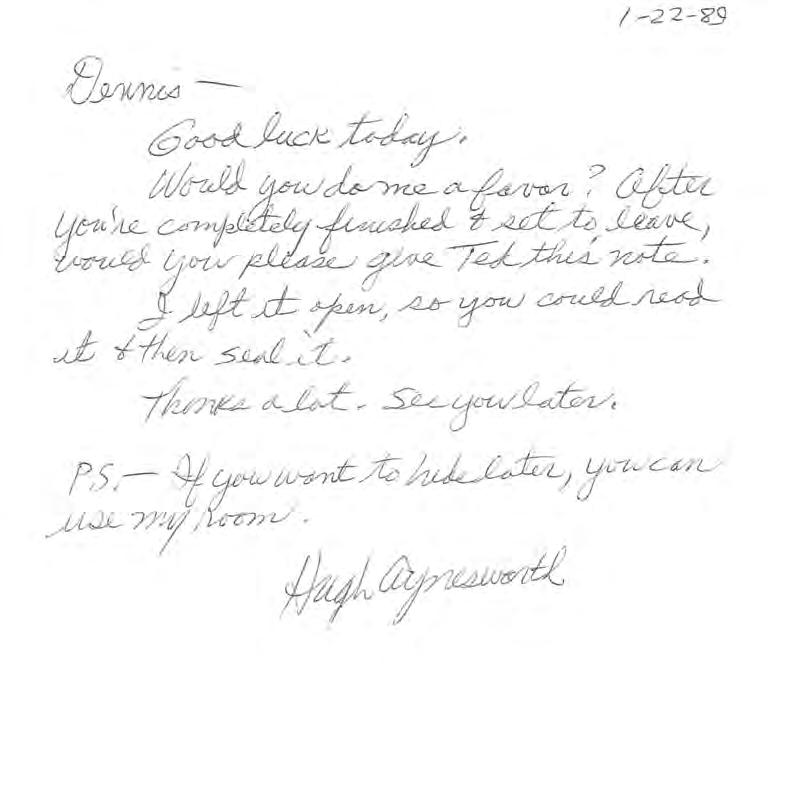 1-22-89
Dennis —
Good luck today.
Would you do me a favor? After
you're completely finished & set to leave,
would you please give Ted this note.
I left it open, so you could read
it & then seal it.
Thanks a lot. See you later.
P.S. — If you want to hide later, you can
use my room.
Hugh Aynesworth